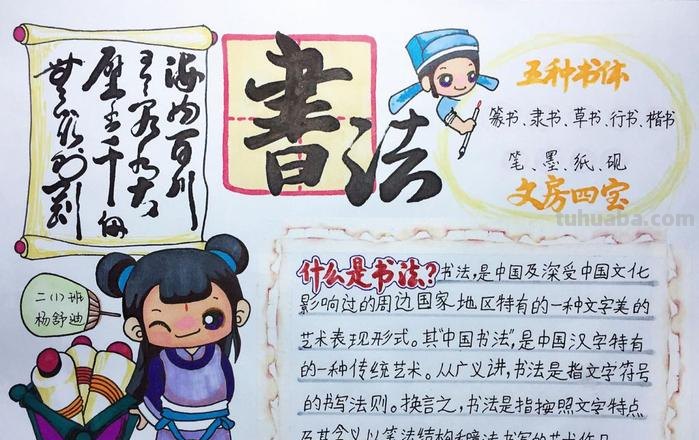 海内百川
有容乃大
壁立千仞
無欲則剛
書法
五种书体
篆书、隶书、草书、行书、楷书
笔、墨、纸、砚
文房四宝
tuhuaba.com
二(1)班
杨舒迪
什么是书法?书法,是中国及深受中国文化
影响过的周边国家、地区特有的一种文字美的
艺术表现形式。其"中国书法",是中国汉字特有
的一种传统艺术。从广义讲,书法是指文字符号
的书写法则。换言之,书法是指按照文字特点
及其含义,以笔法结构和章法书写的艺术作品